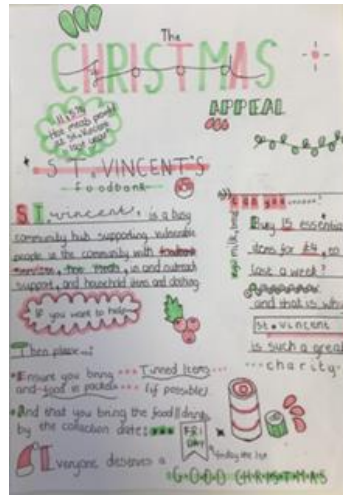 The
CHRISTMAS
APPEAL
hot meals
at St. Vincent
last year
ST. VINCENT'S
foodbank
ST. vincent, is a busy
community hub supporting vulnerable
people in the community with
, and outreach
support, and household items and clothing
If you want to help
Then please...:
Ensure you bring Tinned Items
and food in packets (if possible)
And that you bring the food/drinks
by the collection date: FRI
DAY
Friday the 1st
Everyone deserves a
GOOD CHRISTMAS
can you......?
Buy 15 essential
items for £4, to
last a week?
eggs milk, bread
and that is why
st. vincent
is such a great
charity